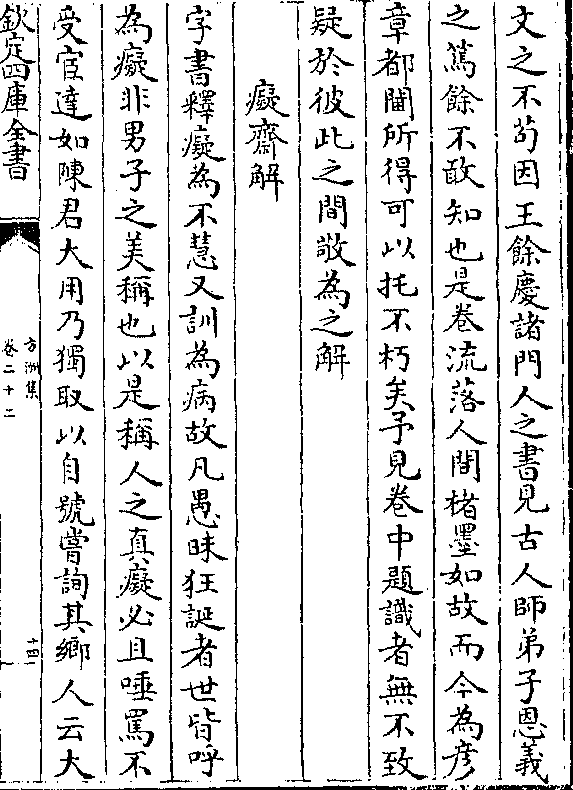 文之不苟因王餘慶諸門人之書見古人師弟子恩義
之篤餘不敢知也是卷流落人間楮墨如故而今為彦
章都閫所得可以托不朽矣予見卷中題識者無不致
疑於彼此之間敬為之解
癡齋解
字書釋癡為不慧又訓為病故凡愚昧狂誕者世皆呼
為癡非男子之美稱也以是稱人之真癡必且唾罵不
受宦達如陳君大用乃獨取以自號嘗詢其鄉人云大
欽定四庫全書
方洲集
卷二十二
十四